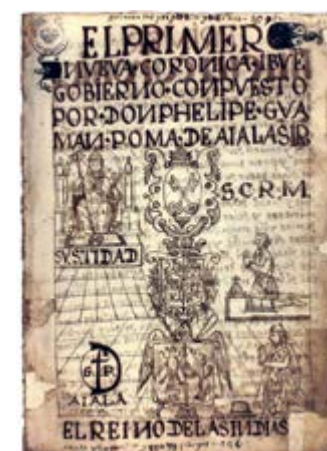 EL PRIMER
NVEVA CORONICA I BVE
GOBIERNO CONPVESTO
POR DON PHELIPE GVA
MAN POMA DE AIALA SIR
S.C.R.M.
SVSTIDAD
AIALA
EL REINO DE LAS INDIAS